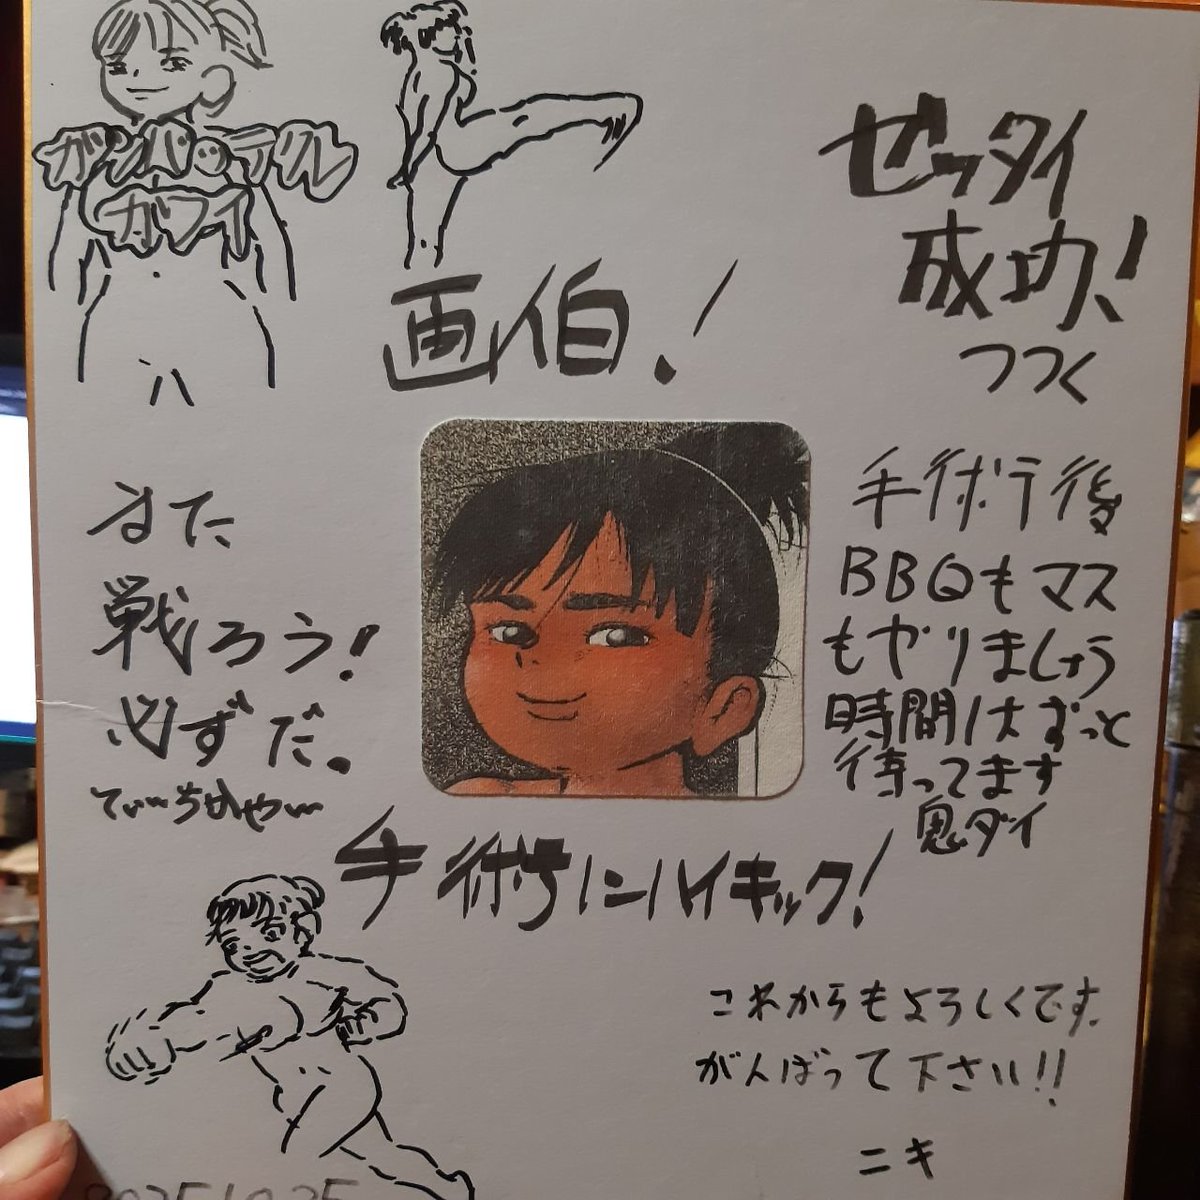 ガンバッテクル
ガフイ
画伯!
ゼッタイ
成功!
つつく
また
戦ろう!
必ずだ。
てぃーちかやー
手術后後
BBQもマス
もヤリましょう
時間はずっと
待ってます
恩ダイ
手術にハイキック!
これからもよろしくです。
がんばって下さい!!
ニキ
2025.10.25